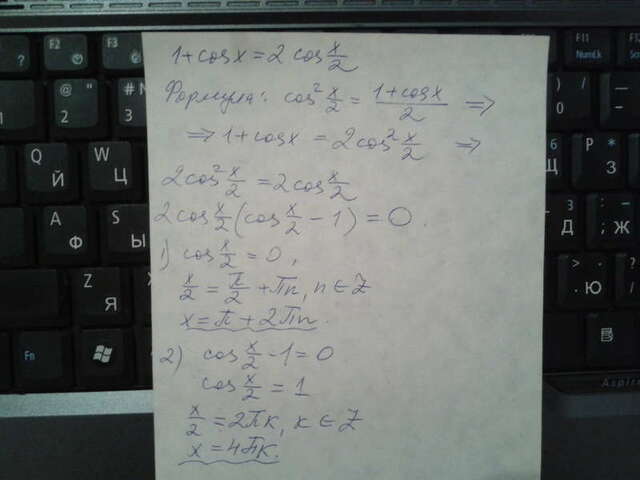 1+cos x = 2 cos x/2
Формула: cos² x/2 = (1+cos x)/2 =>
=> 1+cos x = 2cos² x/2 =>
2cos² x/2 = 2cos x/2
2cos x/2 (cos x/2 - 1) = 0.
1) cos x/2 = 0,
x/2 = π/2 + πn, n ∈ Z
x = π + 2πn.
2) cos x/2 - 1 = 0
cos x/2 = 1
x/2 = 2πk, k ∈ Z
x = 4πk.
F2
F3
F11
NumLk
F12
@
"
2
#
№
3
)
0
Q
Й
W
Ц
P
З
*
8
A
Ф
S
Ы
:
;
Д
Ж
Z
Я
>
.
Ю
?
/
Fn
Aspire